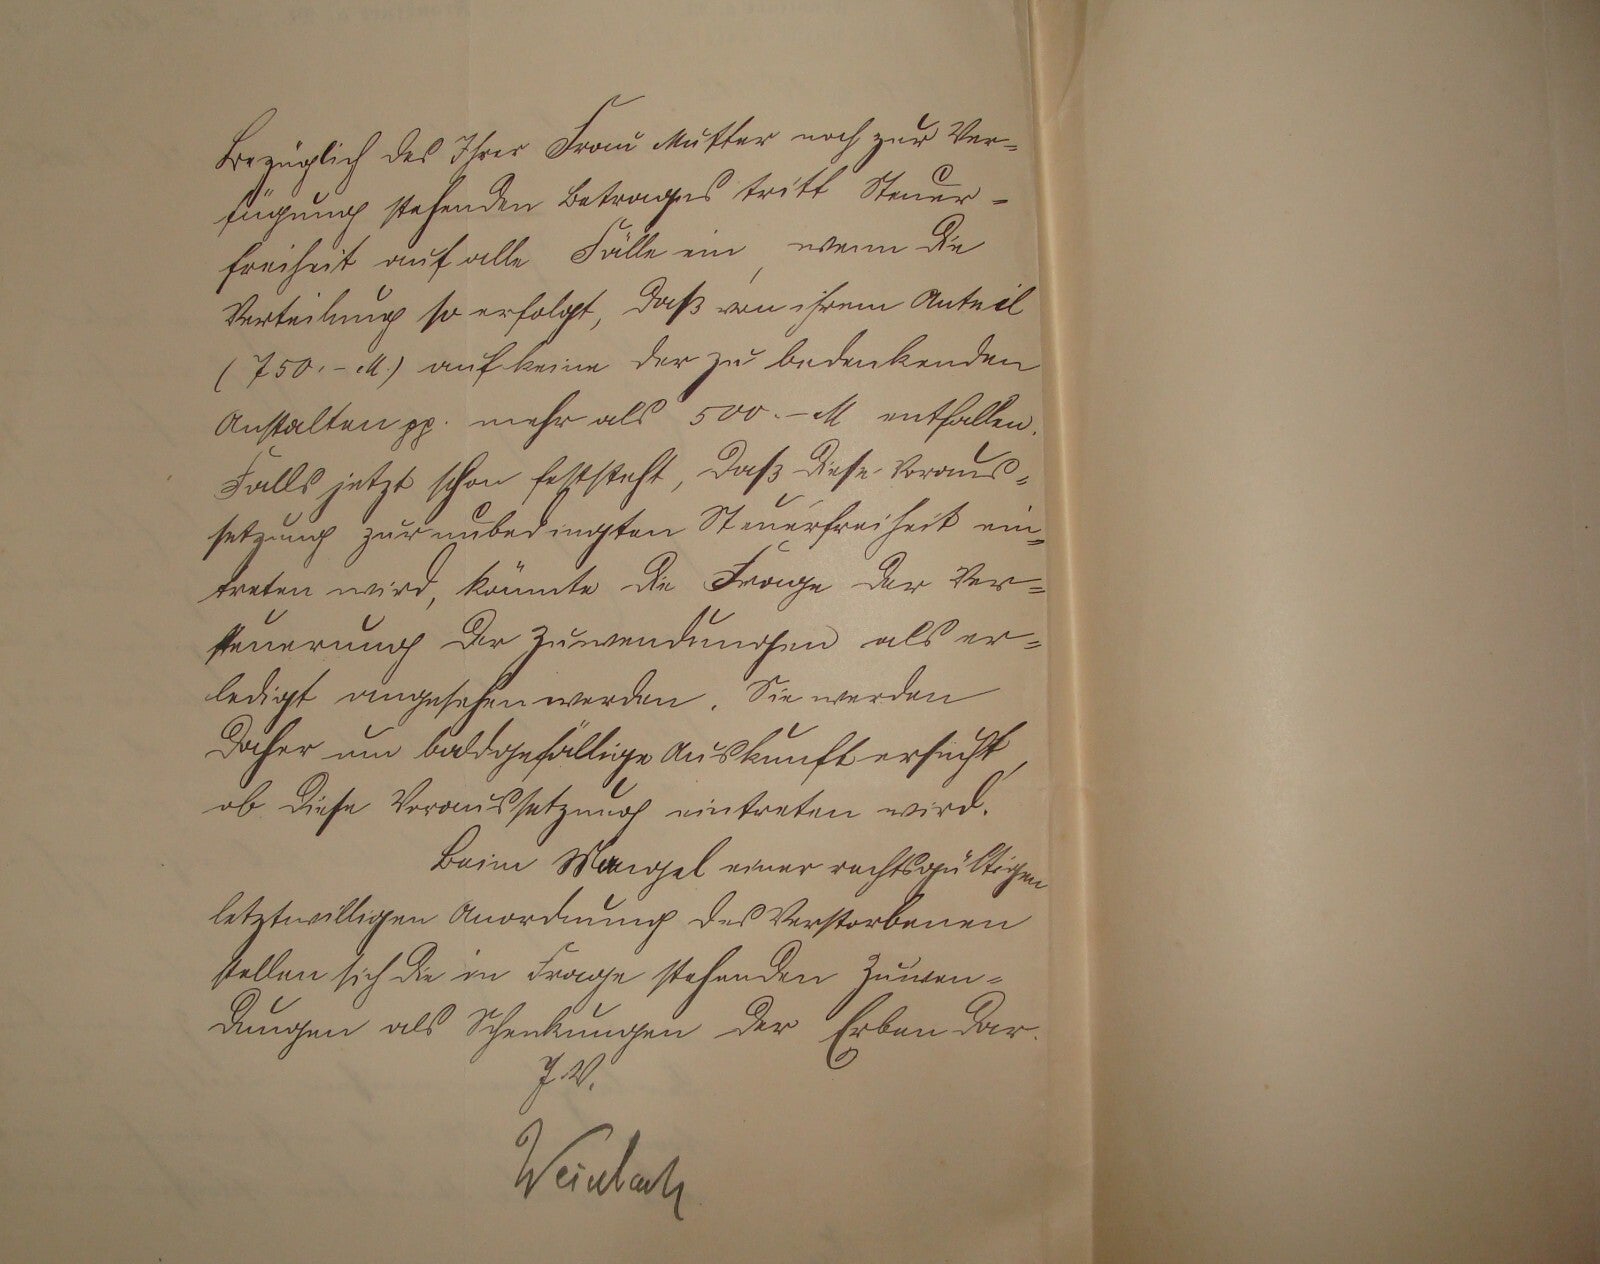 Bezüglich des Ihrer Frau Mutter noch zur Ver=
fügung stehenden Betrages tritt Steuer=
freiheit auf alle Fälle ein, wenn die
Verteilung so erfolgt, daß von ihrem Anteil
(750.-M.) auf keine der zu bedenkenden
Anstalten pp. mehr als 500.-M entfallen.
Falls jetzt schon feststeht, daß diese Voraus=
setzung zur unbedingten Steuerfreiheit ein=
treten wird, könnte die Frage der Ver=
steuerung der Zuwendungen als er=
ledigt angesehen werden. Sie werden
daher um baldgefällige Auskunft ersucht,
ob diese Voraussetzung eintreten wird.
Beim Mangel einer rechtsgültigen
letztwilligen Anordnung des Verstorbenen
stellen sich die in Frage stehenden Zuwen=
dungen als Schenkungen der Erben dar.
J.V.